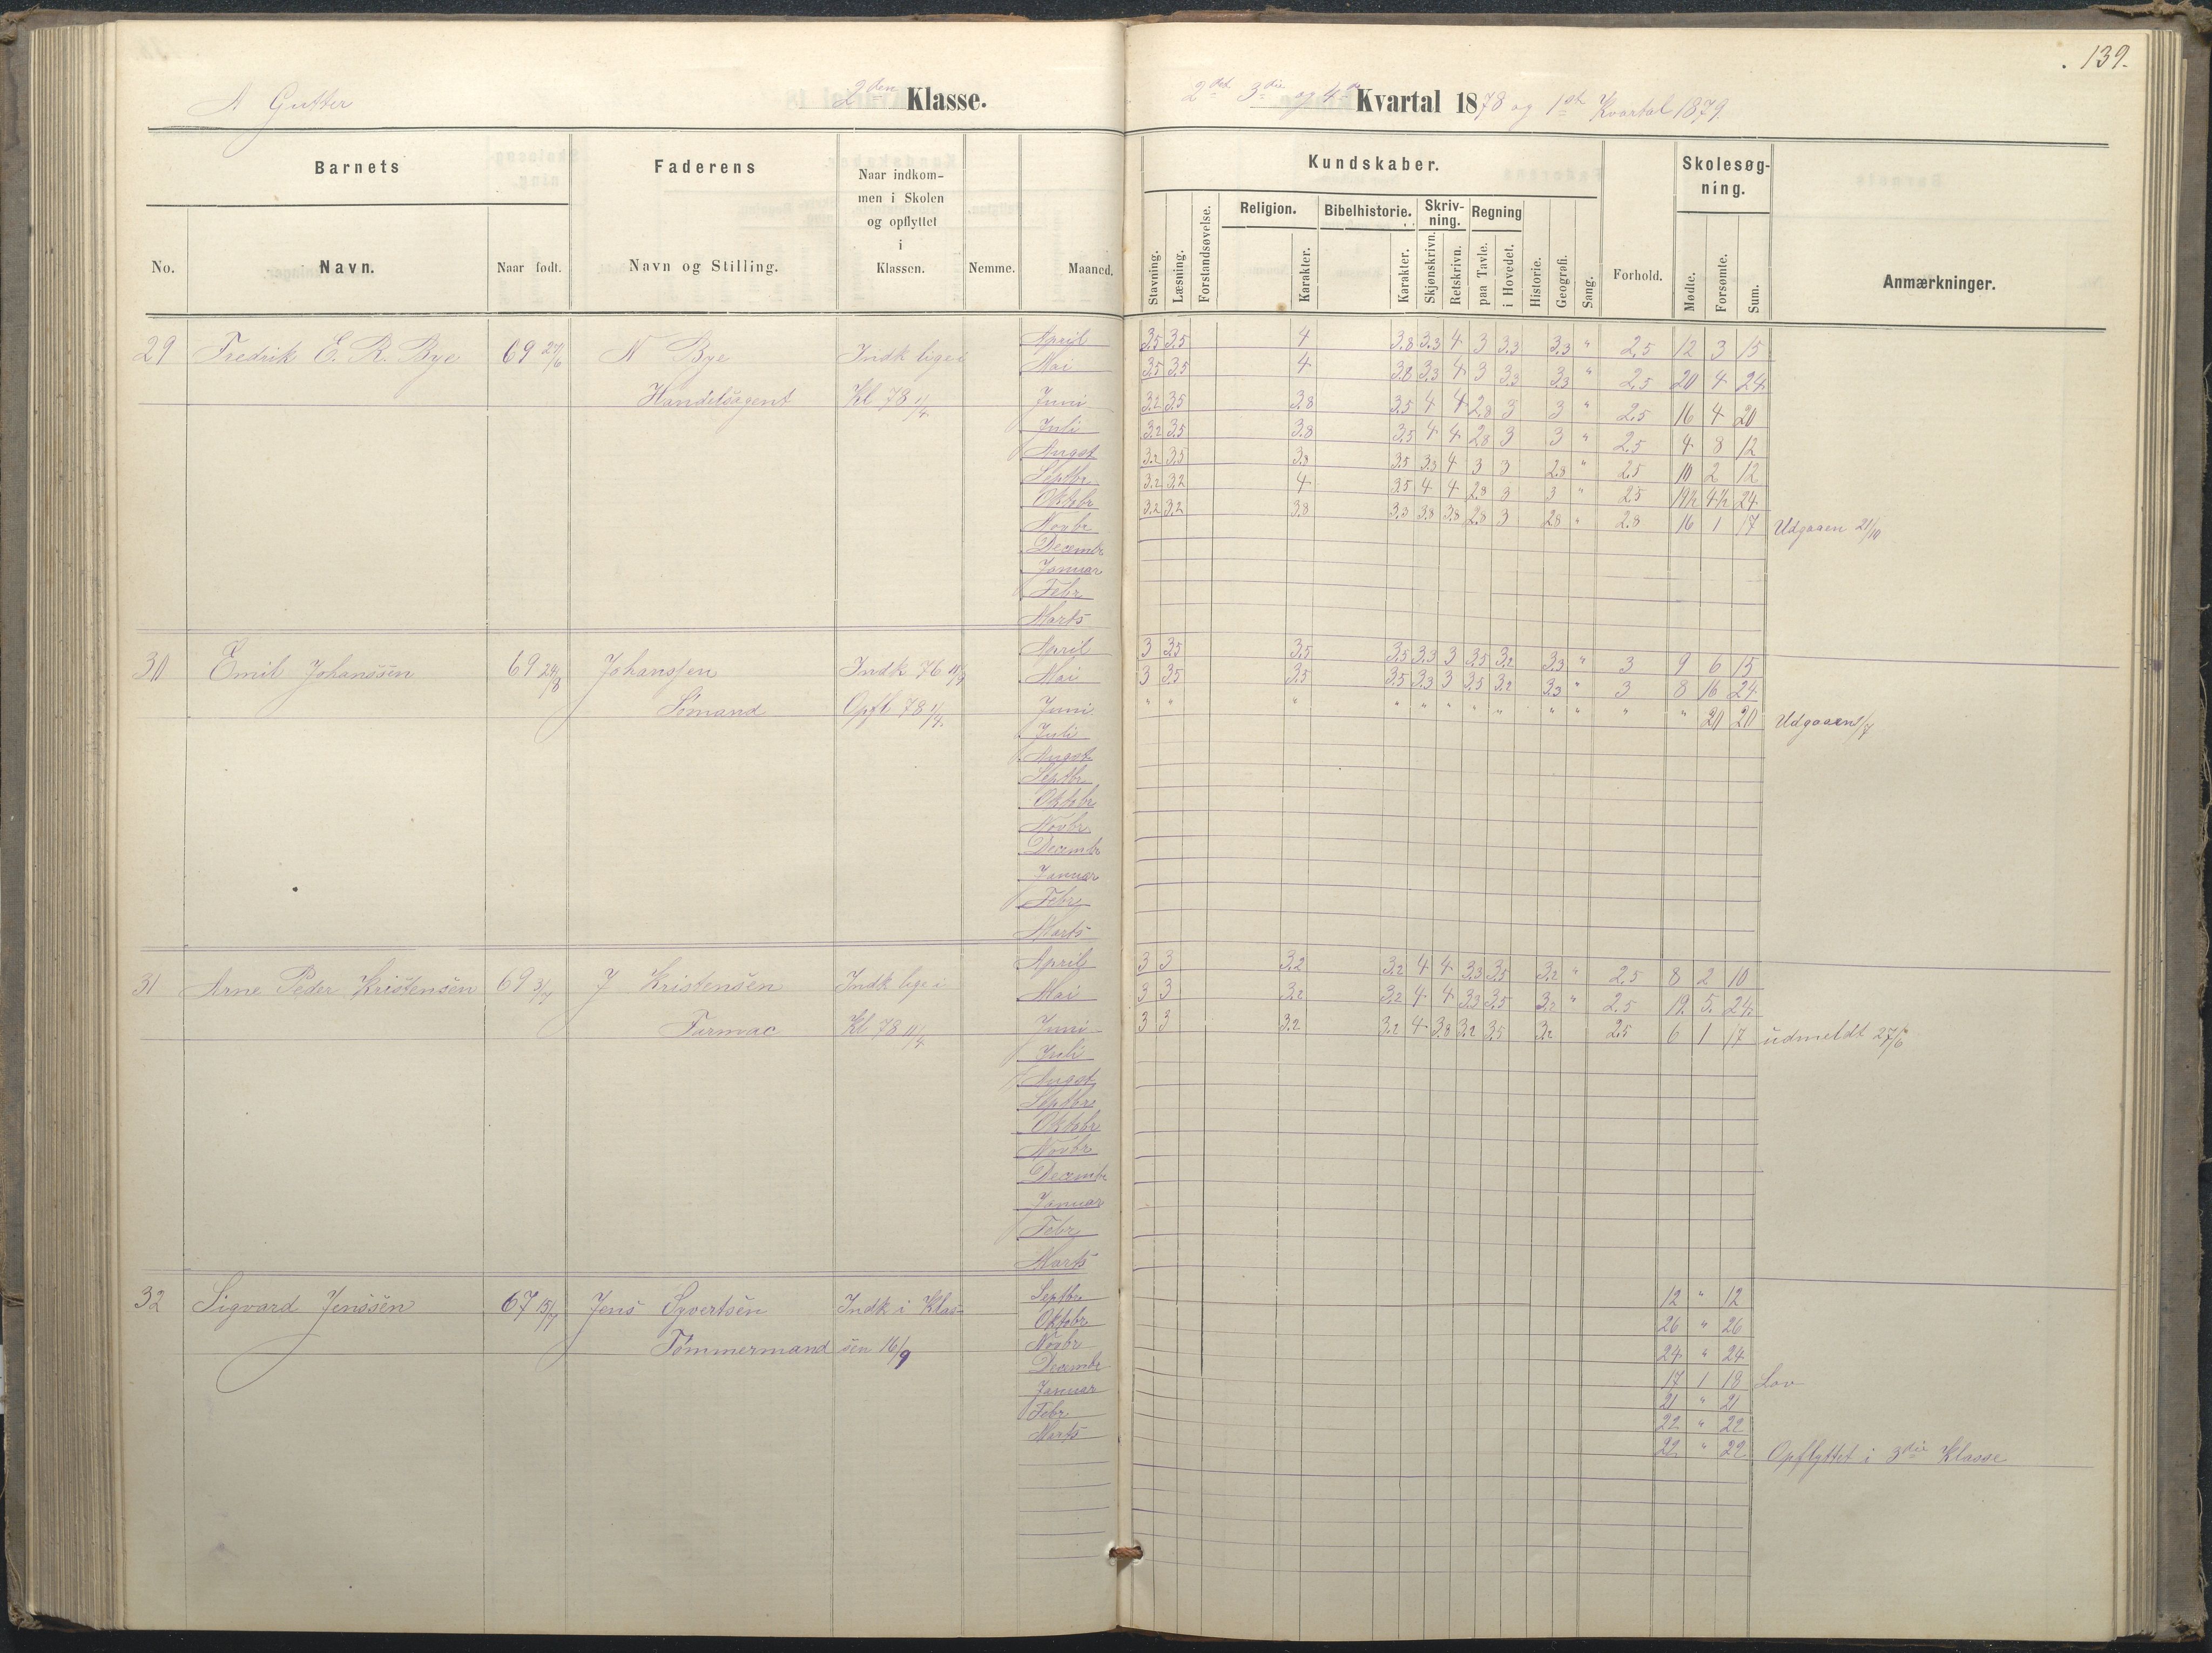 139.
A Gutter 2den Klasse. 2det 3die og 4de Kvartal 1878 og 1ste Kvartal 1879
Barnets Faderens Naar indkommen i Skolen og opflyttet i Klassen. Nemme. Maaned. Kundskaber. Forhold. Skolesøgning. Anmærkninger.
No. Navn. Naar født. Navn og Stilling.
Stavning. Læsning. Forstandsøvelse. Religion. Karakter. Bibelhistorie. Karakter. Skrivning. Skjønskrivn. Retskrivn. Regning paa Tavle. i Hovedet. Historie. Geografi. Sang. Mødte. Forsømte. Sum.
29 Fredrik E. R. Bye 69 27/6 N Bye Indk lige i April 3.5 3.5 4 3.8 3.3 4 3 3.3 3.3 " 2.5 12 3 15
Mai 3.5 3.5 4 3.8 3.3 4 3 3.3 3.3 " 2.5 20 4 24
Handelsagent Kl 78 1/4. Juni 3.2 3.5 3.8 3.5 4 4 2.8 3 3 " 2.5 16 4 20
Juli 3.2 3.5 3.8 3.5 4 4 2.8 3 3 " 2.5 4 8 12
August 3.2 3.5 3.8 3.5 3.3 4 3 3 2.8 " 2.5 10 2 12
Septbr 3.2 3.2 4 3.5 4 4 2.8 3 3 " 2.5 19½ 4½ 24
Oktobr 3.2 3.2 3.8 3.3 3.8 3.8 2.8 3 2.8 " 2.8 16 1 17 Udgaaen 21/10
Novbr
Decembr
Januar
Febr
Marts
30 Emil Johanssen 69 24/8 Johanssen Indk 76 April 3 3.5 3.5 3.5 3.3 3 3.5 3.2 3.3 " 3 9 6 15
Mai 3 3.5 3.5 3.5 3.3 3 3.5 3.2 3.3 " 3 8 16 24
Sømand Opfl 78 1/4. Juni " " " " " " " " " " " " 20 20 Udgaaen 1/7
Juli
August
Septbr
Oktobr
Novbr
Decembr
Januar
Febr
Marts
31 Arne Peder Kristensen 69 3/7 J Kristensen Indk lige i April 3 3 3.2 3.2 4 4 3.3 3.5 3.2 " 2.5 8 2 10
Mai 3 3 3.2 3.2 4 4 3.3 3.5 3.2 " 2.5 19 5 24
Kl 78 11/4 Juni 3 3 3.2 3.2 4 3.8 3.2 3.5 3.2 2.5 6 1 17 udmeldt 27/6
Juli
August
Septbr
Oktobr
Novbr
Decembr
Januar
Febr
Marts
32 Sigvard Jenssen 67 15/7 Jens Syvertsen Indk i Klas- Septbr 12 " 12
Oktobr 26 " 26
Tømmermand sen 16/9 Novbr 24 " 24
Decembr 17 1 18 Lov
Januar 21 " 21
Febr 22 " 22
Marts 22 " 22 Opflyttet i 3die Klasse